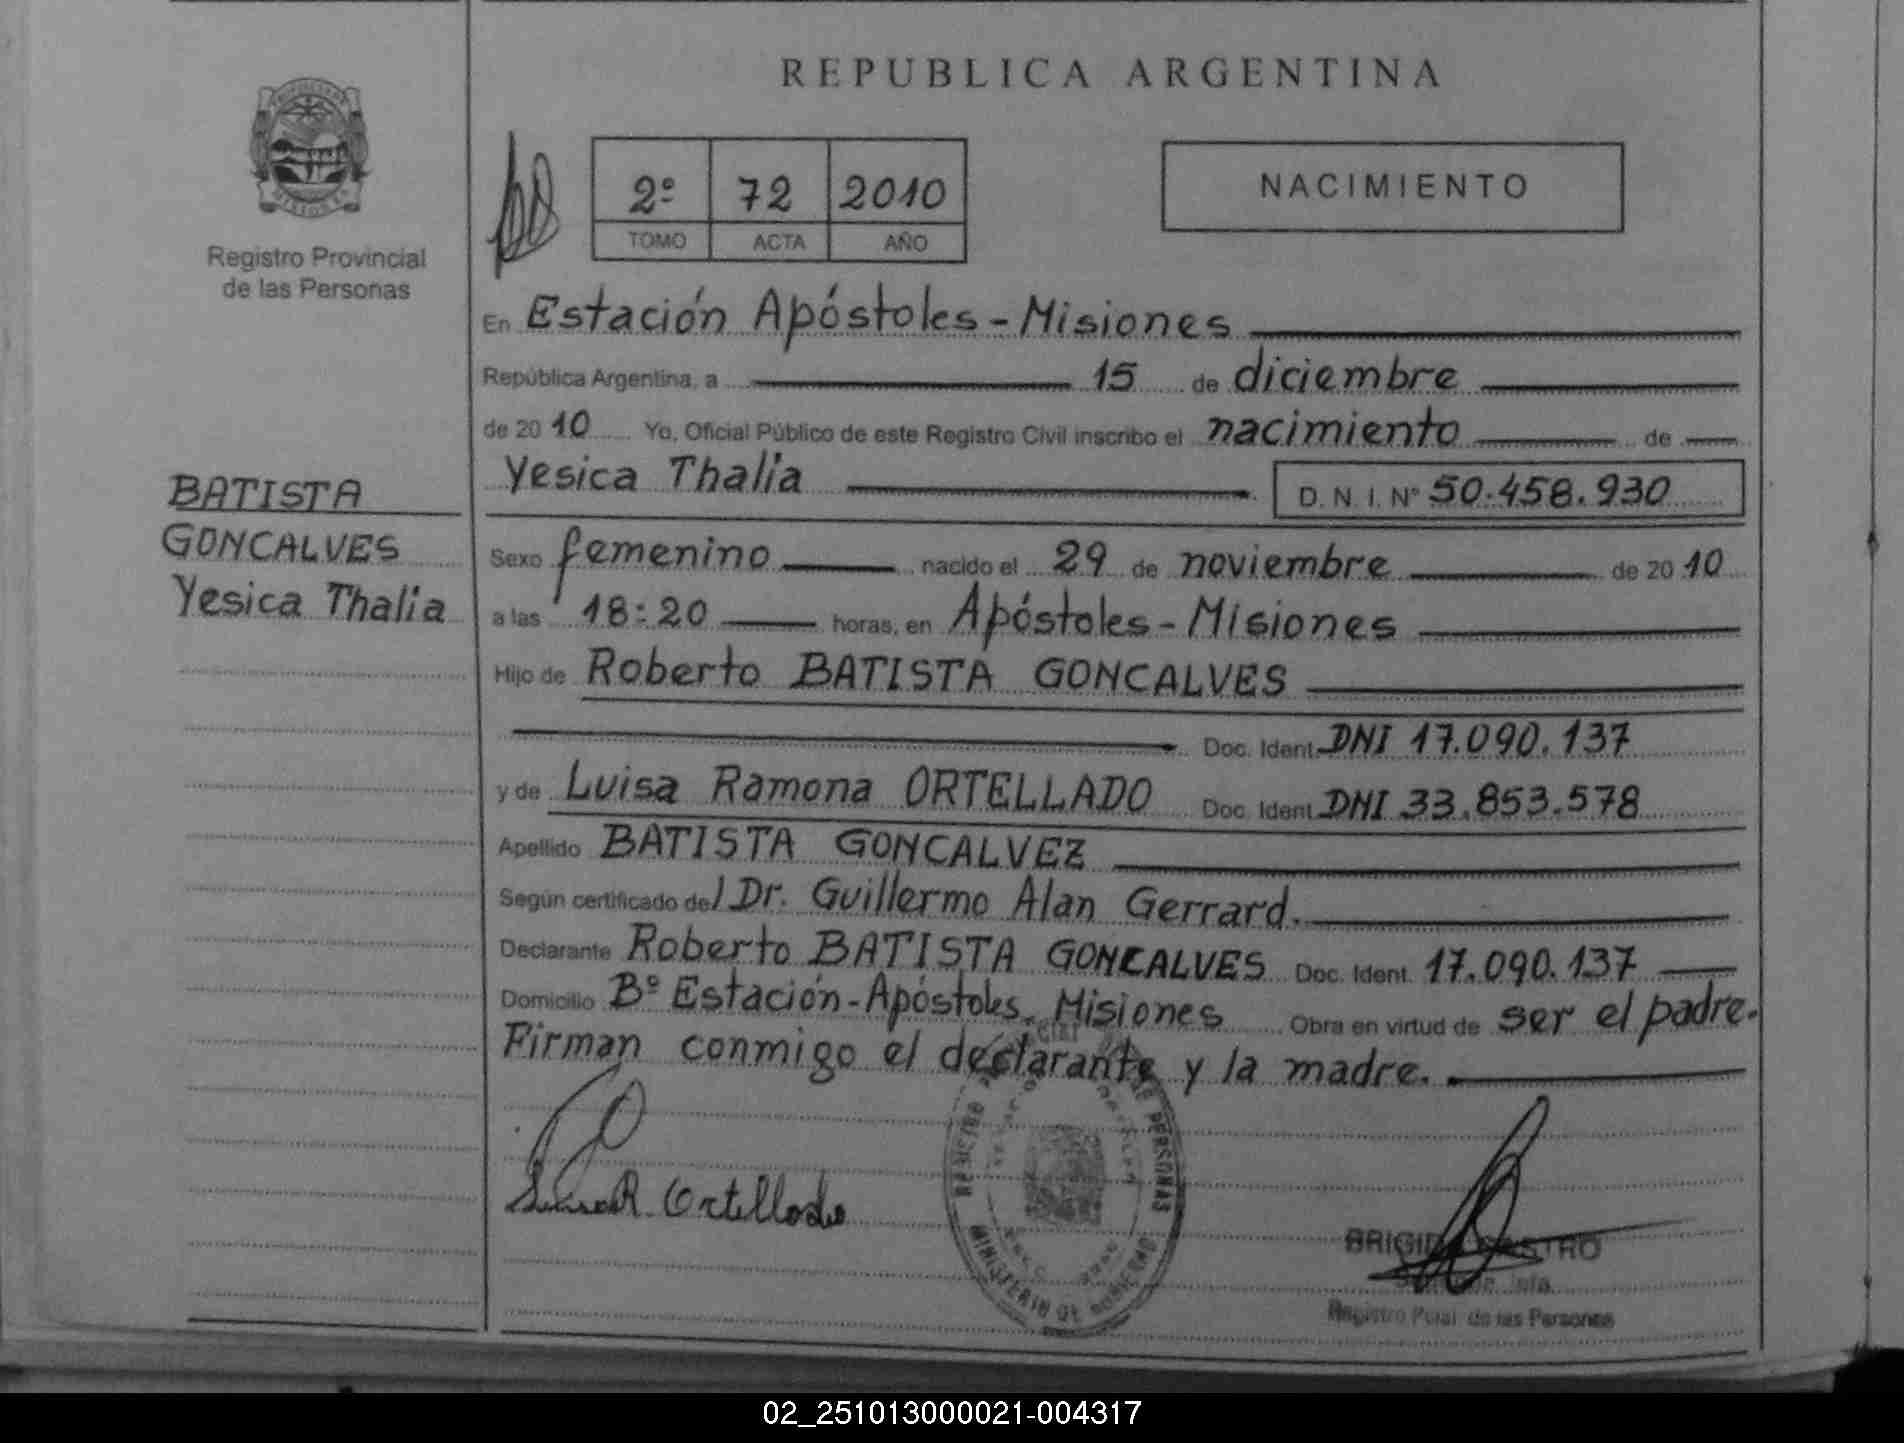 REPUBLICA ARGENTINA
2º 72 2010
TOMO ACTA AÑO
NACIMIENTO
Registro Provincial
de las Personas
En Estación Apóstoles - Misiones
República Argentina, a 15 de diciembre
de 20 10 Yo, Oficial Público de este Registro Civil inscribo el nacimiento de
Yesica Thalia D. N. I. Nº 50.458.930
BATISTA
GONCALVES
Yesica Thalia
Sexo femenino nacido el 29 de noviembre de 20 10
a las 18:20 horas, en Apóstoles - Misiones
Hijo de Roberto BATISTA GONCALVES
Doc. Ident. DNI 17.090.137
y de Luisa Ramona ORTELLADO Doc. Ident. DNI 33.853.578
Apellido BATISTA GONCALVEZ
Según certificado del Dr. Guillermo Alan Gerrard.
Declarante Roberto BATISTA GONCALVES Doc. Ident. 17.090.137
Domicilio Bº Estación - Apóstoles, Misiones Obra en virtud de ser el padre.
Firman conmigo el declarante y la madre.
REGISTRO DE LAS PERSONAS
MINISTERIO DE GOBIERNO
Luisa R. Ortellado
BRIGIDA CASTRO
Registro Pcial. de las Personas
02_251013000021-004317